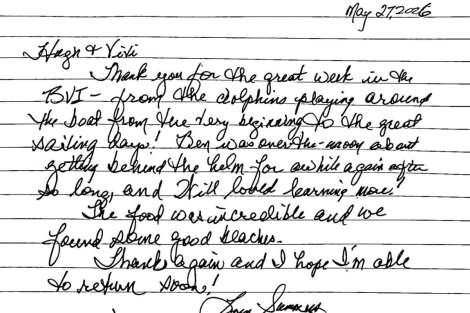 May 27, 2026
Hugn & Viti
Thank you for the great week in the
BVI - from the dolphins playing around
the boat from the very beginning to the great
sailing days! Ben was over-the-moon about
getting behind the helm for awhile again after
so long, and Will loved learning more!
The food was incredible and we
found some good beaches.
Thanks again and I hope I'm able
to return soon!